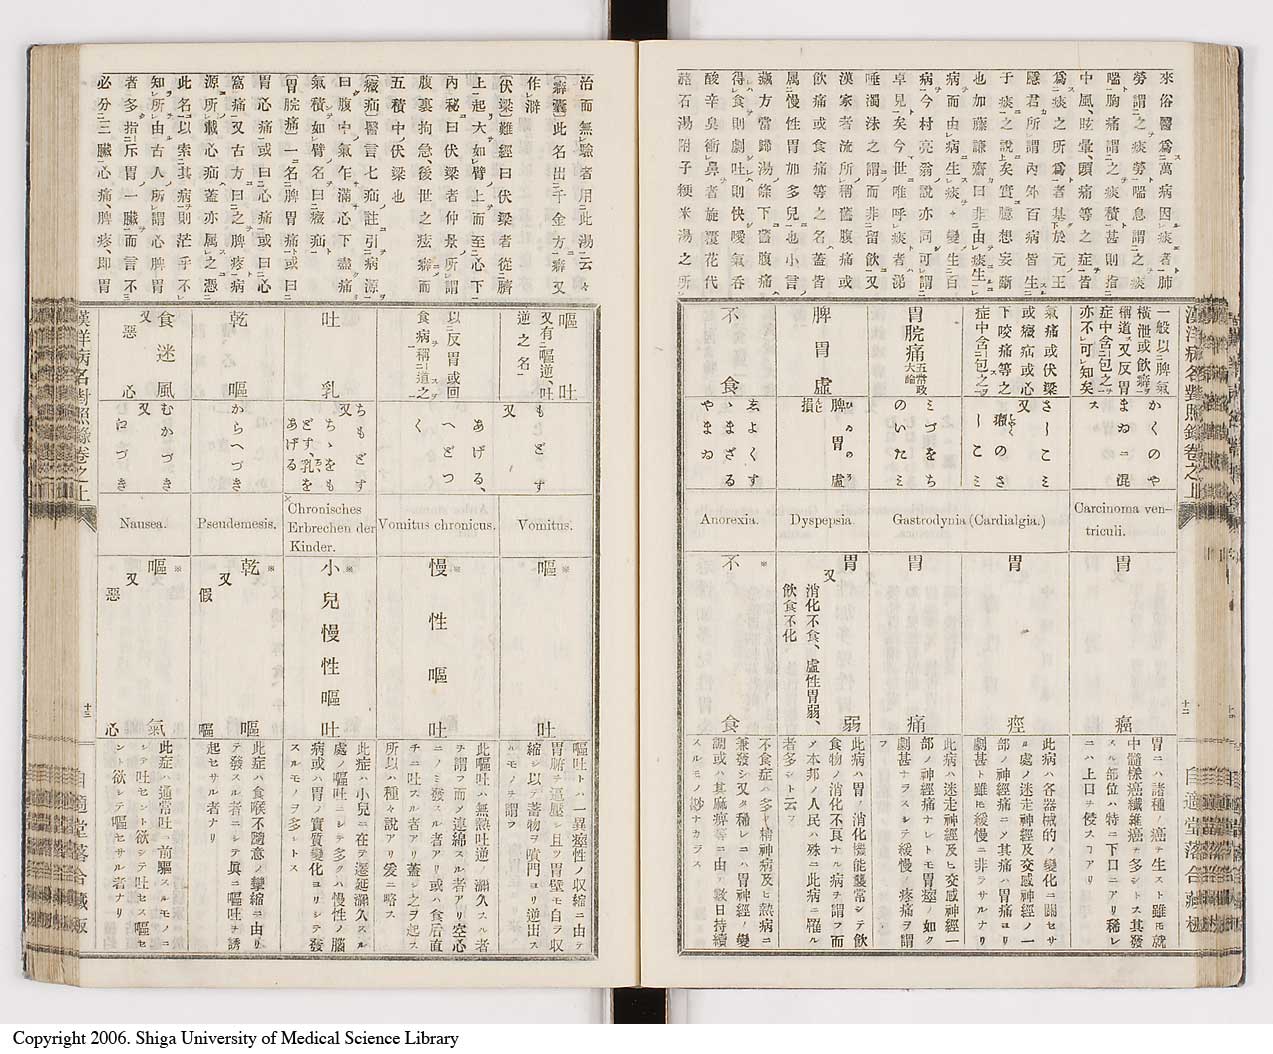 來俗醫爲萬病因痰者肺
勞謂之痰勞喘息謂之痰
喘胸痛謂之痰積甚則指
中風眩暈、頭痛等之症皆
爲痰之所爲者基於元王
隱君所謂內外百病皆生
子痰之說矣實臆想妄斷
也加藤謙齋曰非由痰生
病而由病生痰々變生百
病今村亮翁說亦同可謂
卓見矣今世唯呼痰者涕
唾濁沫之謂而非留飲又
漢家者流所稱舊腹痛或
飲痛或食痛等之名蓋皆
属慢性胃加多兒也小言
藏方當歸湯條下舊腹痛
得食則劇吐則快噯氣吞
酸辛臭衝鼻者旋覆花代
赭石湯附子粳米湯之所
漢洋病名對照錄卷之上
十二
自適堂落合藏板
一般以脾氣
橫泄或飲癖
稱道又反胃
症中含包之
亦不可知矣
かくのや
まゐニ混
ス
Carcinoma ven-
triculi.
胃癌
胃ニハ諸種ノ癌チ生スト雖モ就
中髓樣癌纖維癌チ多シトス其發
スル部位ハ特ニ下口ニアリ稀レ
ニハ上口チ侵スコアリ
氣痛或伏梁
或癥疝或心
下咬痛等之
症中含包之
さしこミ
又 癪のさ
しこミ
Gastrodynia (Cardialgia.)
胃痙
此病ハ各器械的ノ變化ニ關セサ
ル處ノ迷走神經及交感神經ノ一
部ノ神經痛ニノ其痛胃痛ヨリ
劇甚ト雖モ緩慢ニ非ラサルナリ
胃脘痛 五常政大論
ミづをち
のいたミ
胃痛
此病ハ迷走神經及ヒ交感神經一
部ノ神經痛ナレトモ胃痙ノ如ク
劇甚ナラスシテ緩慢ノ疼痛ヲ謂
フ
脾胃虛
脾胃 の虛
損
Dyspepsia
胃弱
又 消化不食、虛性胃弱、
飲食不化
此病ハ胃ノ消化機能鬱常シテ飲
食物ノ消化不良ナル病チ謂フ而
メ本邦ノ人民ハ殊ニ此病ニ罹ル
者多シト云フ
不食
ゑよくす
ゝまざる
やまゐ
Anorexia.
不食
不食症ハ多ク精神病及ヒ熱病ニ
兼發シ又タ稀レニハ胃神經ノ變
調或ハ其麻痺等ニ由テ數日持續
スルモノ尠ナカラス
治而無驗者用此湯云々
〔癖囊〕此名出千金方癖又
作澼
〔伏梁〕難經曰伏梁者從臍
上起大如臂上而至心下
內秘曰伏梁者仲景所謂
腹裏拘急、後世之痃癖而
五積中伏梁也
〔癥疝〕醫言七疝註引病源
曰腹中氣乍滿心下盡痛
氣積如臂名曰癥疝
〔胃脘痛〕一名脾胃痛或曰
胃心痛或曰心痛或曰心
窩痛又古方曰之脾疼病
源所載心疝蓋亦属之憑
此名以索其病則茫乎不
知所由古人所謂心脾胃
者多指斥胃一臟而言不
必分三臟心痛、脾疼即胃
嘔吐
又有嘔逆、吐
逆之名
もどす
又 あげる、
Vomitus.
※嘔吐
嘔吐トハ一異痙性ノ収縮ニ由テ
胃腑チ逼壓シ且ツ胃壁モ自ラ収
縮シ以テ蓄物ヲ噴門ヨリ逆出ス
ルモノチ謂フ
以反胃或回
食病稱道之
へどつ
く
Vomitus chronicus.
※慢性嘔吐
此嘔吐ハ無熱吐逆ノ溺久スル者
ヲ謂フ而メ連綿スル者アリ空心
ニノミ發スル者アリ或ハ食后直
チニ吐スル者アリ蓋シ之ヲ起ス
所以ハ種々說アリ爰ニ略ス
吐乳
ちもどす
又 ちゝをも
どす、乳を
あげる
Chronisches
Erbrechen der
Kinder.
※小兒慢性嘔吐
此症ハ小兒ニ在テ遷延溺久スル
處ノ嘔吐ニシテ多クハ慢性ノ腦
病或ハ胃ノ實質變化ヨリシテ發
スルモノヲ多シトス
乾嘔
からへづき
Pseudemesis.
※乾嘔
又 假嘔
此症ハ食喉不隨意ノ攣縮ニ由リ
テ發スル者ニシテ眞ニ嘔吐チ誘
起セサル者ナリ
食迷風
又 惡心
むかづき
又 ゑづき
Nausea.
※嘔氣
又 惡心
此症ハ通常吐ノ前驅スルモノニ
シテ吐セント欲シテ吐セス嘔セ
ント欲シテ嘔セサル者ナリ
漢洋病名對照錄卷之上
十三
自適堂落合藏板
Copyright 2006. Shiga University of Medical Science Library